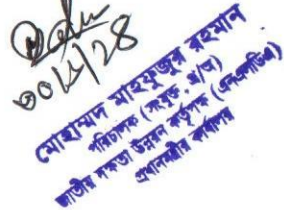 ৩০/৮/২৪
মোহাম্মদ মাহফুজুর রহমান
পরিচালক (সংযুক্ত, প্র/অ)
জাতীয় দক্ষতা উন্নয়ন কর্তৃপক্ষ (এনএসডিএ)
প্রধানমন্ত্রীর কার্যালয়